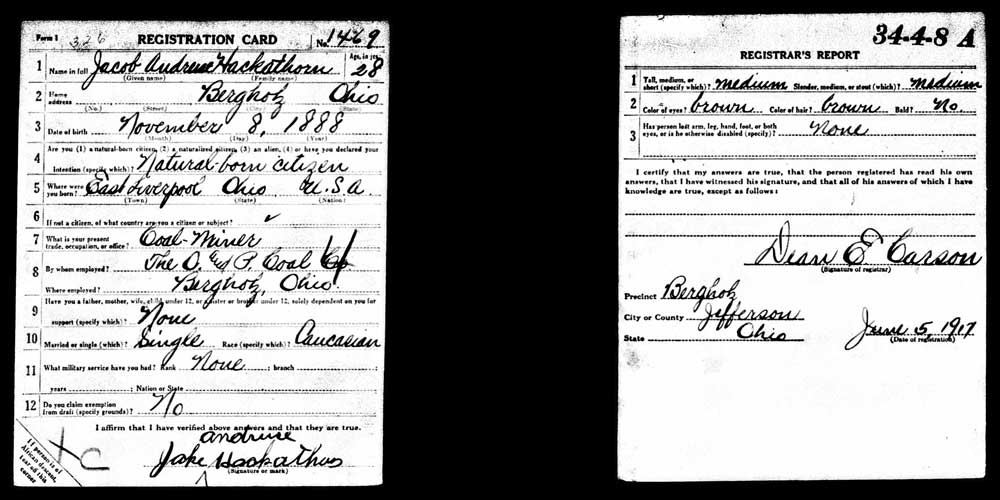 Form 1 326 REGISTRATION CARD No. 1469
1 Name in full Jacob Andrews Hackathorn Age, in yrs. 28
(Given name) (Family name)
2 Home address Bergholz Ohio
(No.) (Street) (City) (State)
3 Date of birth November 8, 1888
(Month) (Day) (Year)
4 Are you (1) a natural-born citizen, (2) a naturalized citizen, (3) an alien, (4) or have you declared your
intention (specify which)? Natural-born citizen
5 Where were you born? East Liverpool Ohio U.S.A
(Town) (State) (Nation)
6 If not a citizen, of what country are you a citizen or subject?
7 What is your present trade, occupation, or office? Coal-Miner
8 By whom employed? The O. and P. Coal Co
Where employed? Bergholz, Ohio.
9 Have you a father, mother, wife, child under 12, or a sister or brother under 12, solely dependent on you for
support (specify which)? None
10 Married or single (which)? Single Race (specify which)? Caucasian
11 What military service have you had? Rank None ; branch ;
years ; Nation or State
12 Do you claim exemption from draft (specify grounds)? No
I affirm that I have verified above answers and that they are true.
andruse
Jake Hackathorn
(Signature or mark)
If person is of
African descent,
tear off this
corner
34-4-8 A
REGISTRAR'S REPORT
1 Tall, medium, or short (specify which)? medium Slender, medium, or stout (which)? medium
2 Color of eyes? brown Color of hair? brown Bald? No.
3 Has person lost arm, leg, hand, foot, or both
eyes, or is he otherwise disabled (specify)? None
I certify that my answers are true, that the person registered has read his own
answers, that I have witnessed his signature, and that all of his answers of which I have
knowledge are true, except as follows:
Dean E Carson
(Signature of registrar)
Precinct Bergholz
City or County Jefferson
State Ohio June 5, 1917
(Date of registration)